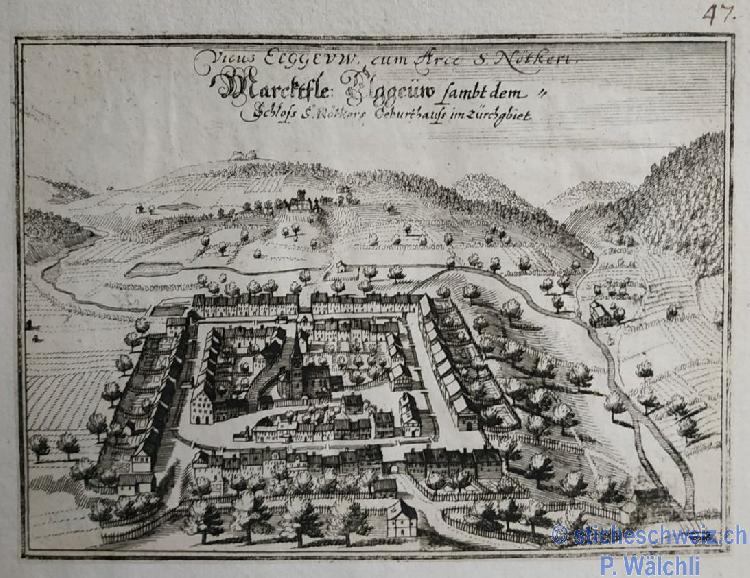 47.
Vicus ECGGEVW, cum Arce S. Nötkeri.
Marcktfle: Elggeüw sambt dem
Schloss S. Nötkers Geburthauss im Zürchgbiet
© sticheschweiz.ch
P. Wälchli